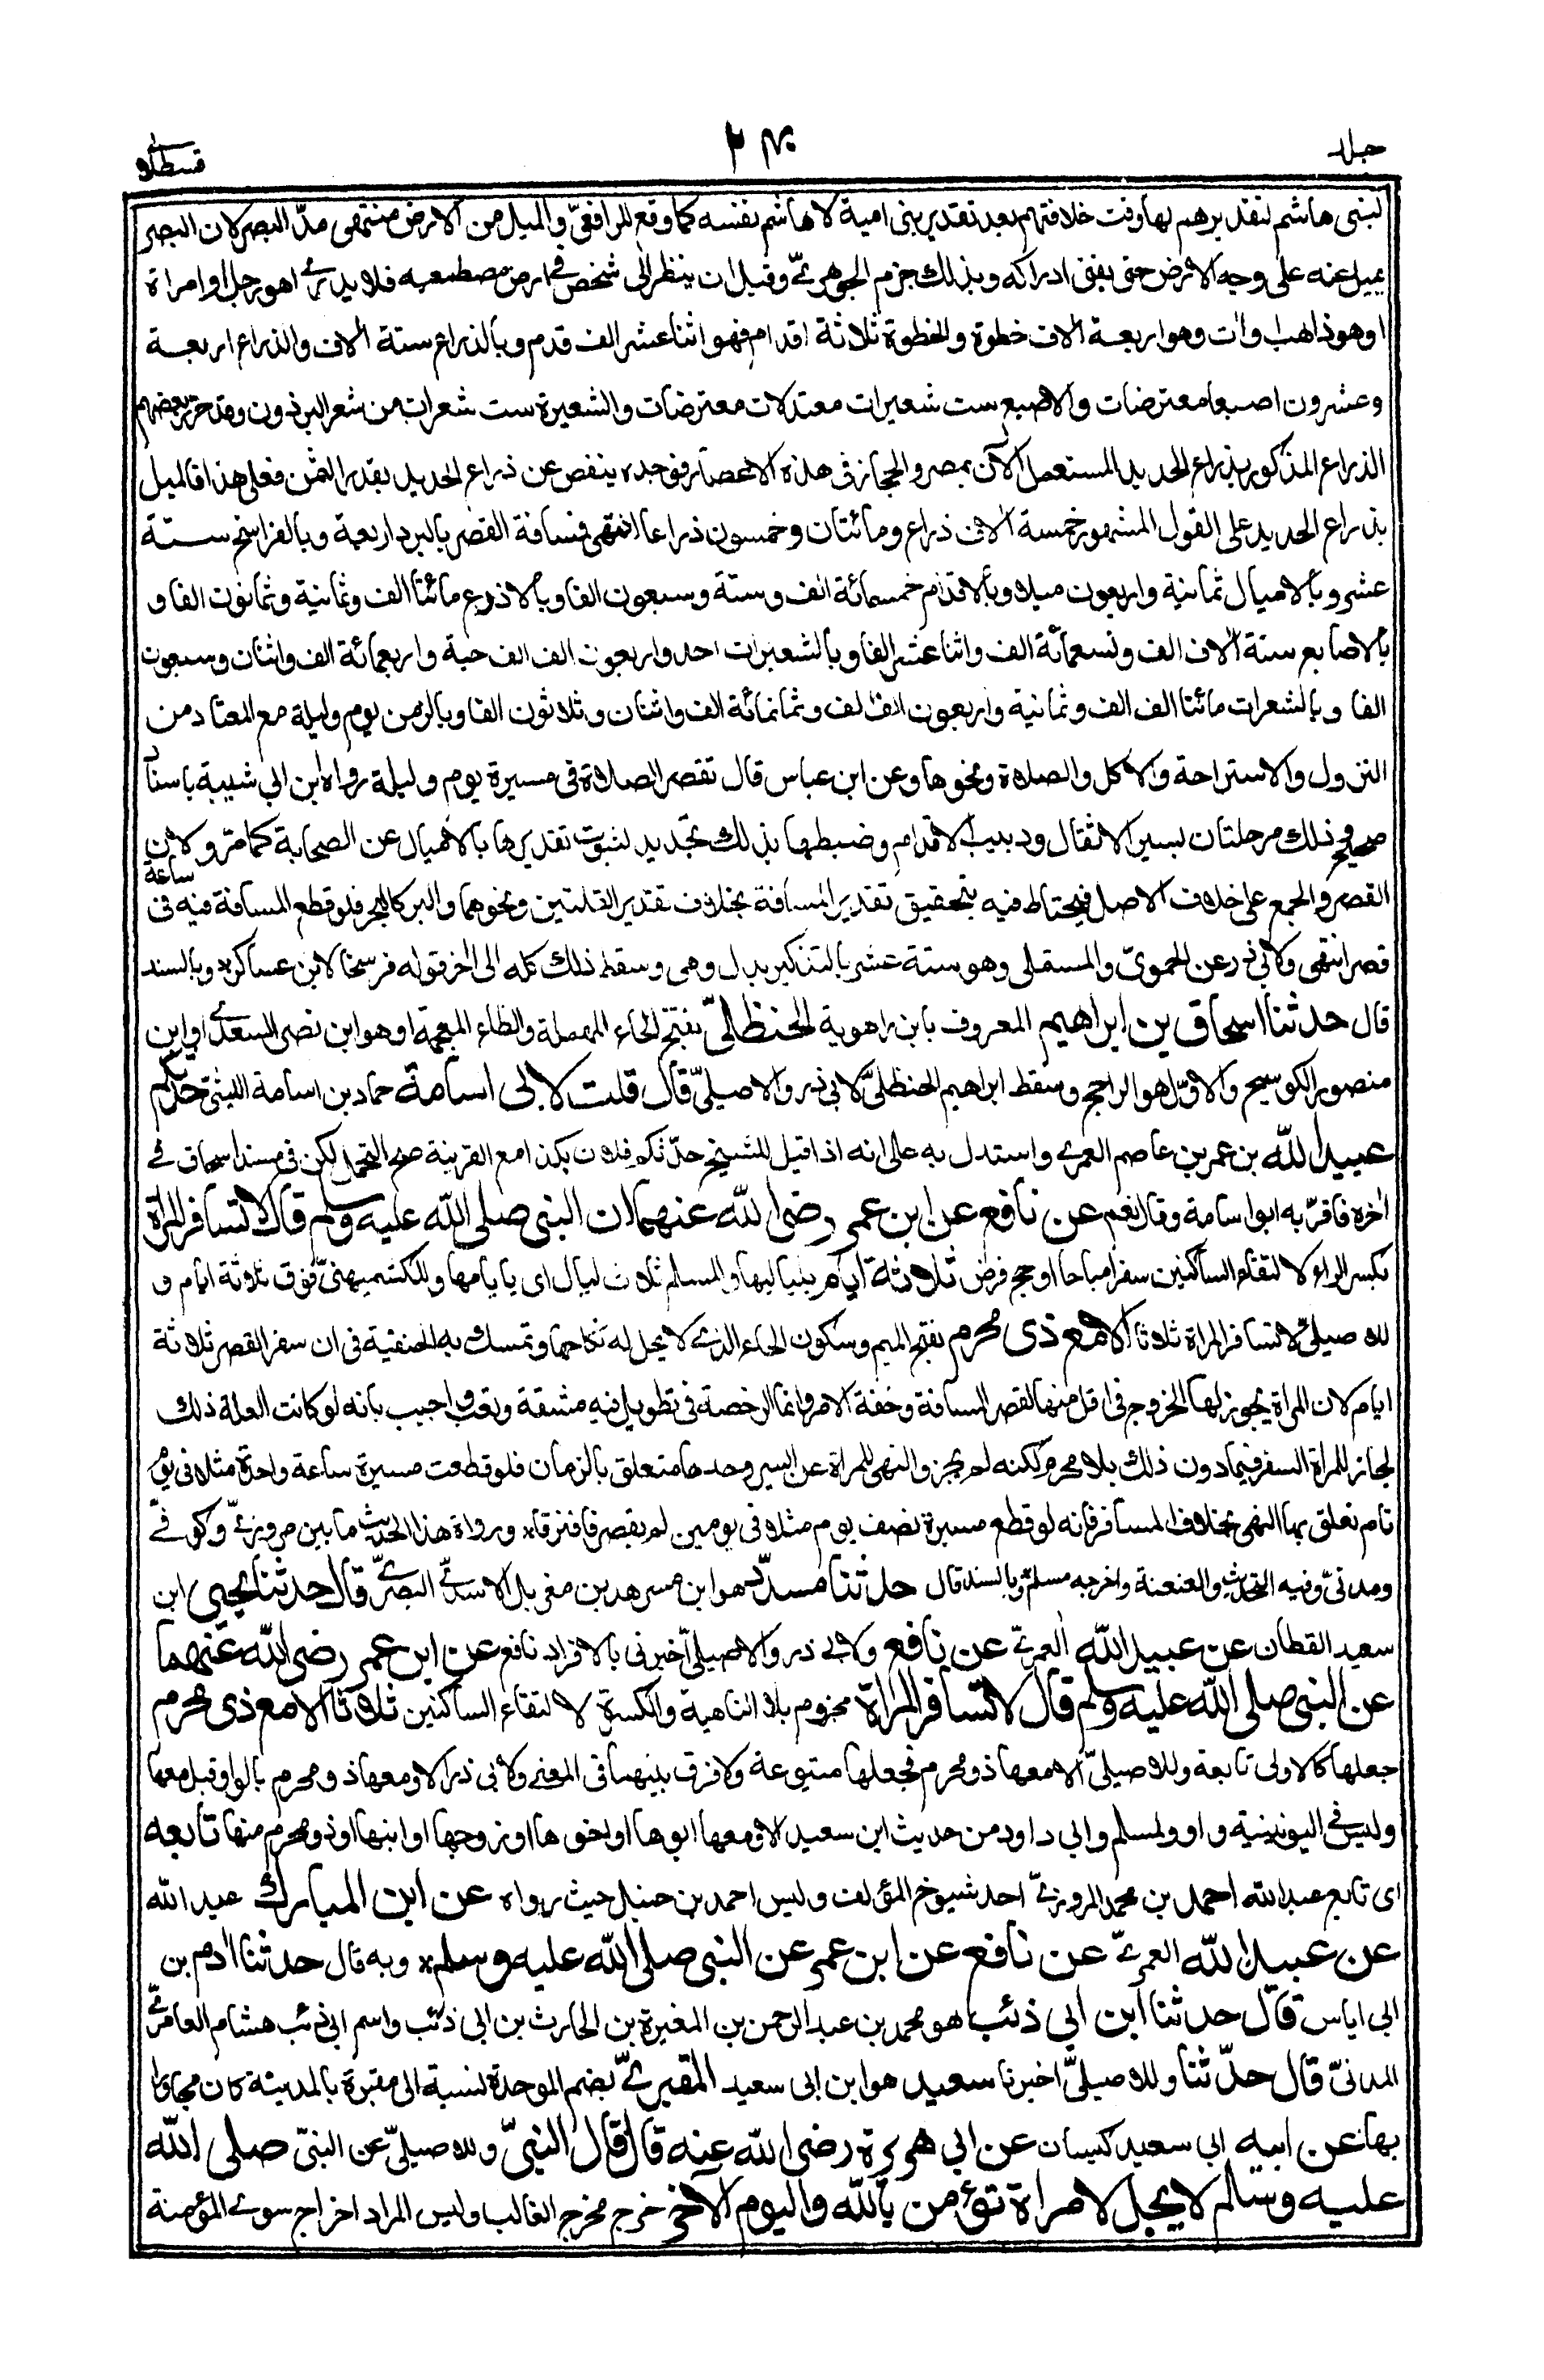 جلد
قسطلانے
لبنى هاشم لتقديرهم لها وقت خلافتهم بعد تقدير بنى امية لا هاشم نفسه كما وقع للرافعىّ والميل من الارض منتهى مدّ البصر لان البصر
يميل عنه على وجه الارض حتى يفنى ادراكه وبذلك جزم الجوهرىّ وقيل ان ينظر الى شخص فى ارض مصطحبه فلا يدرى اهو رجل او امراة
او هو ذاهب او ات وهو اربعة الاف خطوة والخطوة ثلاثة اقدام فهو اثنا عشر الف قدم وبالذراع ستة الاف والذراع اربعة
وعشرون اصبعا معترضات والاصبع ست شعيرات معتدلات معترضات والشعيرة ست شعرات من شعر البرذون وقد حرّر بعضهم
الذراع المذكور بذراع الحديد المستعمل الآن بمصر والحجاز فى هذه الاعصار فوجده ينقص عن ذراع الحديد بقدر الثمن فعلى هذا فالميل
بذراع الحديد على القول المشهور خمسة الاف ذراع ومائتان وخمسون ذراعا انتهى فمسافة القصر بالبرد اربعة وبالفراسخ ستة
عشر وبالاميال ثمانية واربعون ميلا وبالاقدام خمسمائة الف وستة وسبعون الفا وبالاذرع مائتا الف وثمانية وثمانون الفا و
بالاصابع ستة الاف الف وتسعمائة الف واثنا عشر الفا وبالشعيرات احد واربعون الف الف حبة واربعمائة الف واثنان وسبعون
الفا وبالشعرات مائتا الف الف وثمانية واربعون الف الف وثمانمائة الف واثنان وثلاثون الفا وبالزمن يوم وليلة مع المعتاد من
النزول والاستراحة والاكل والصلاة ونحوها وعن ابن عباس قال تقصر الصلاة فى مسيرة يوم وليلة رواه ابن ابى شيبة باسناد
صحيح وذلك مرحلتان بسير الاثقال ودبيب الاقدام وضبطها بذلك تحديد لثبوت تقديرها بالاميال عن الصحابة كما مرّ ولان
القصر والجمع على خلاف الاصل فيحتاط فيه بتحقيق تقدير المسافة بخلاف تقدير القلتين ونحوهما والبر كالبحر فلو قطع المسافة فيه فى ساعة
قصر انتهى ولابى ذر عن الحموىّ والمستملى وهو ستة عشر بالتذكير بدل وهى وسقط ذلك كله الى اخر قوله فرسخا لابن عساكر* وبالسند
قال حدثنا اسحاق بن ابراهيم المعروف بابن راهوية الحنظلىّ بفتح الحاء المهملة والظاء المعجمة او هو ابن نصر السعدى او ابن
منصور الكوسج والاوّل هو الراجح وسقط ابراهيم الحنظلىّ لابى ذر والاصيلىّ قال قلت لابى اسامة حماد بن اسامة الليثى حدّثكم
عبيد الله بن عمر بن عاصم العمرى واستدل به على انه اذا قيل للشيخ حدّثكم فلان بكذا مع القرينة صح التحمل لكن فى مسند اسحاق فى
اخره فاقرّ به ابو اسامة وقال نعم عن نافع عن ابن عمر رضى الله عنهما ان النبى صلى الله عليه وسلم قال لا تسافر المراة
بكسر الراء لالتقاء الساكنين سفرا مباحا او حج فرض ثلاثة ايام بلياليها ولمسلم ثلاث ليال اى بايامها وللكشميهنىّ فوق ثلاثة ايام و
للاصيلىّ لا تسافر المراة ثلاثا الا مع ذى محرم بفتح الميم وسكون الحاء الذى لا يحل له نكاحها وتمسك به الحنفية فى ان سفر القصر ثلاثة
ايام لان المراة يجوز لها الخروج فى اقل منها لقصر المسافة وخفة الامر وانما الرخصة فى تطويل فيه مشقة وتعب واجيب بانه لو كانت العلة ذلك
لجاز للمراة السفر فيما دون ذلك بلا محرم لكنه لم يجز والنهى للمراة عن السير وحدها متعلق بالزمان فلو قطعت مسيرة ساعة واحدة مثلا فى يوم
تام تعلق بها النهى بخلاف المسافر فانه لو قطع مسيرة نصف يوم مثلا فى يومين لم يقصر فافترقا* ورواة هذا الحديث ما بين مروزىّ وكوفى
ومدنىّ وفيه التحديث والعنعنة واخرجه مسلم* وبالسند قال حدثنا مسدّد هو ابن مسرهد بن مغربل الاسدىّ البصرىّ قال حدثنا يحيى ابن
سعيد القطان عن عبيد الله العمرىّ عن نافع ولابى ذر والاصيلىّ اخبرنى بالافراد نافع عن ابن عمر رضى الله عنهما
عن النبى صلى الله عليه وسلم قال لا تسافر المراة مجزوم بلا الناهية والكسرة لالتقاء الساكنين ثلاثا الا مع ذى محرم
جعلها كالاولى تابعة وللاصيلىّ الا معها ذو محرم فجعلها متبوعة ولا فرق بينهما فى المعنى ولابى ذر الا ومعها ذو محرم بالواو قبل معها
وليس فى اليونينية واو ولمسلم وابى داود من حديث ابن سعيد الا ومعها ابوها او اخوها او زوجها او ابنها او ذو محرم منها تابعه
اى تابع عبد الله احمد بن محمد المروزىّ احد شيوخ المؤلف وليس احمد بن حنبل حيث رواه عن ابن المبارك عبد الله
عن عبيد الله العمرىّ عن نافع عن ابن عمر عن النبى صلى الله عليه وسلم* وبه قال حدثنا ادم بن
ابى اياس قال حدثنا ابن ابى ذئب هو محمد بن عبد الرحمن بن المغيرة بن الحارث بن ابى ذئب واسم ابى ذئب هشام العامرىّ
المدنىّ قال حدّثنا وللاصيلىّ اخبرنا سعيد هو ابن ابى سعيد المقبرىّ بضم الموحدة نسبة الى مقبرة بالمدينة كان مجاورا
بها عن ابيه ابى سعيد كيسان عن ابى هريرة رضى الله عنه قال قال النبىّ وللاصيلىّ عن النبىّ صلى الله
عليه وسلم لا يحل لامراة تؤمن بالله واليوم الآخر خرج مخرج الغالب وليس المراد اخراج سوى المؤمنة